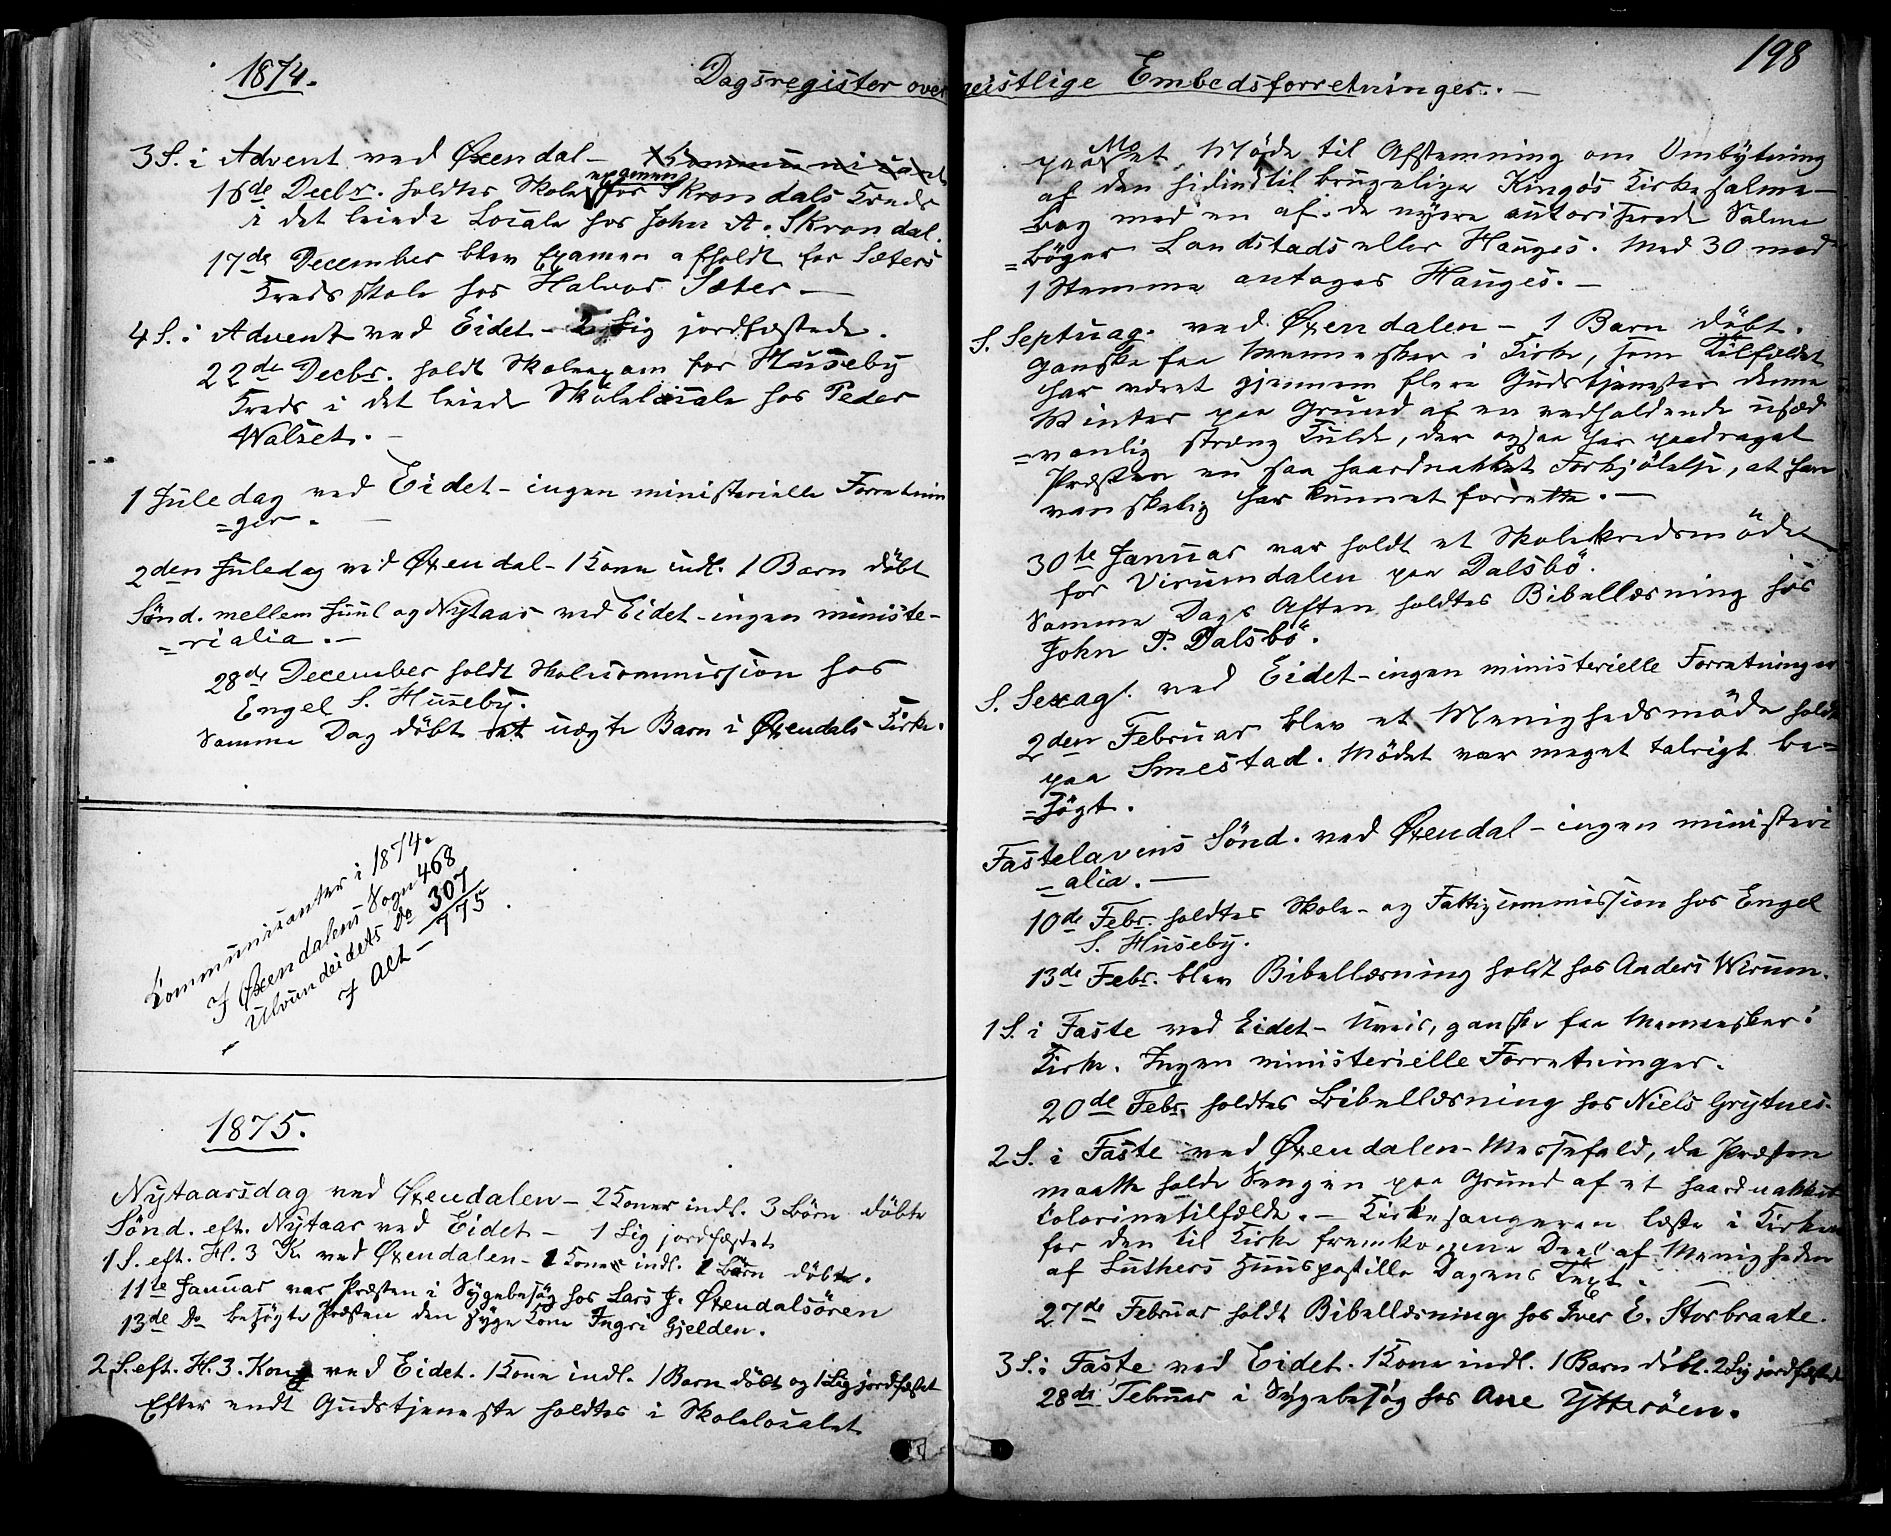 1874.
Dagsregister over geistlige Embedsforretninger. —
198
3 S. i Advent ved Øxendal –
16de Decbr. holdtes Skoleexamen for Skrondals Kreds
i det leiede Locale hos John A. Skrondal.
17de December blev Examen afholdt for Sæters
Kredsskole hos Halvor Sæter —
4 S. i Advent ved Eidet – 2 Lig jordfæstede.
22de Decbr. holdt Skoleexam for Huseby
Kreds i det leiede Skolelocale hos Peder
Walset. –
1 Juledag ved Eidet – ingen ministerielle Forretnin
=ger. —
2den Juledag ved Øxendal – 1 Kone indl. 1 Barn döbt
Sönd. mellem Juul og Nytaar ved Eidet – ingen ministe-
=rialia. —
28de December holdt Skolecommission hos
Engel S. Huseby.
Samme Dag döbt et uægte Barn i Øxendals Kirke.
Communicanter i 1874.
I Øxendalens Sogn 468
– Ulvundeidets Do 307
I Alt – 775.
1875.
Nytaarsdag ved Øxendalen – 2 Koner indl. 3 Börn döbte
Sönd. eft. Nytaar ved Eidet – 1 Lig jordfæstet
1 S. eft. H. 3 K. ved Øxendalen – 1 Kone indl. 1 Barn döbt.
11te Januar var Præsten i Sygebesög hos Lars J. Øxendalsören
13de Do besögte Præsten den syge Kone Ingri Gjelden.
2 S. eft. H. 3. Kong ved Eidet. 1 Kone indl. 1 Barn döbt og 1 Lig jordfæstet
Efter endt Gudstjeneste holdtes i Skolelocalet
paa Møde til Afstemning om Ombytning
af den hidindtil brugelige Kingos Kirkesalme-
bog med en af de nyere autoriserede Salme
=böger Landstads eller Hauges. Med 30 mod
1 Stemme antages Hauges. —
S. Septuag. ved Øxendalen – 1 Barn döbt.
Ganske faa Mennesker i Kirke, som Tilfældet
har været gjennem flere Gudstjenester denne
Winter paa Grund af en vedholdende usæd
=vanlig streng Kulde, der ogsaa har paadraget
Præsten en saa haardnakket Forkjölelse, at han
vanskelig har kunnet forrette. —
30te Januar var holdt et Skolekredsmöde
for Virumdalen paa Dalsbö.
Samme Dags Aften holdtes Bibellæsning hos
John P. Dalsbö.
S. Sexag. ved Eidet – ingen ministerielle Forretninger
2den Februar blev et Menighedsmöde holdt
paa Smestad. Mödet var meget talrigt be=
=sögt.
Fastelavens Sönd. ved Øxendal – ingen ministeri
=alia. —
10de Febr. holdtes Skole- og Fattigcommission hos Engel
S. Huseby.
13de Febr. blev Bibellæsning holdt hos Anders Wirum.
1 S. i Faste ved Eidet – Uveir, ganske faa Mennesker i
Kirke. Ingen ministerielle Forretninger.
20de Febr. holdtes Bibellæsning hos Niels Grytnes.
2 S. i Faste ved Øxendalen – Messefald, da Præsten
maatte holde Sengen paa Grund af et haardnakket
Colerinetilfælde. — Kirkesangeren læste i Kirken
for den til Kirke fremkomne Deel af Menigheden
af Luthers Huuspostille Dagens Text. —
27de Februar holdt Bibellæsning hos Iver E. Storbraate.
3 S. i Faste ved Eidet. 1 Kone indl. 1 Barn döbt. 2 Lig jordfæstede
28de Februar i Sygebesög hos Ane Ytteröen.